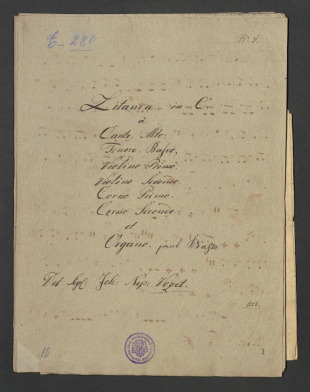 E 280
Litania in C.
à
Canto Alto
Tenore, Basso,
Violino Primo
Violino Secondo
Corno Primo
Corno Secondo
et
Organo
Del Sigl. Joh: Nep: Vogel.
1